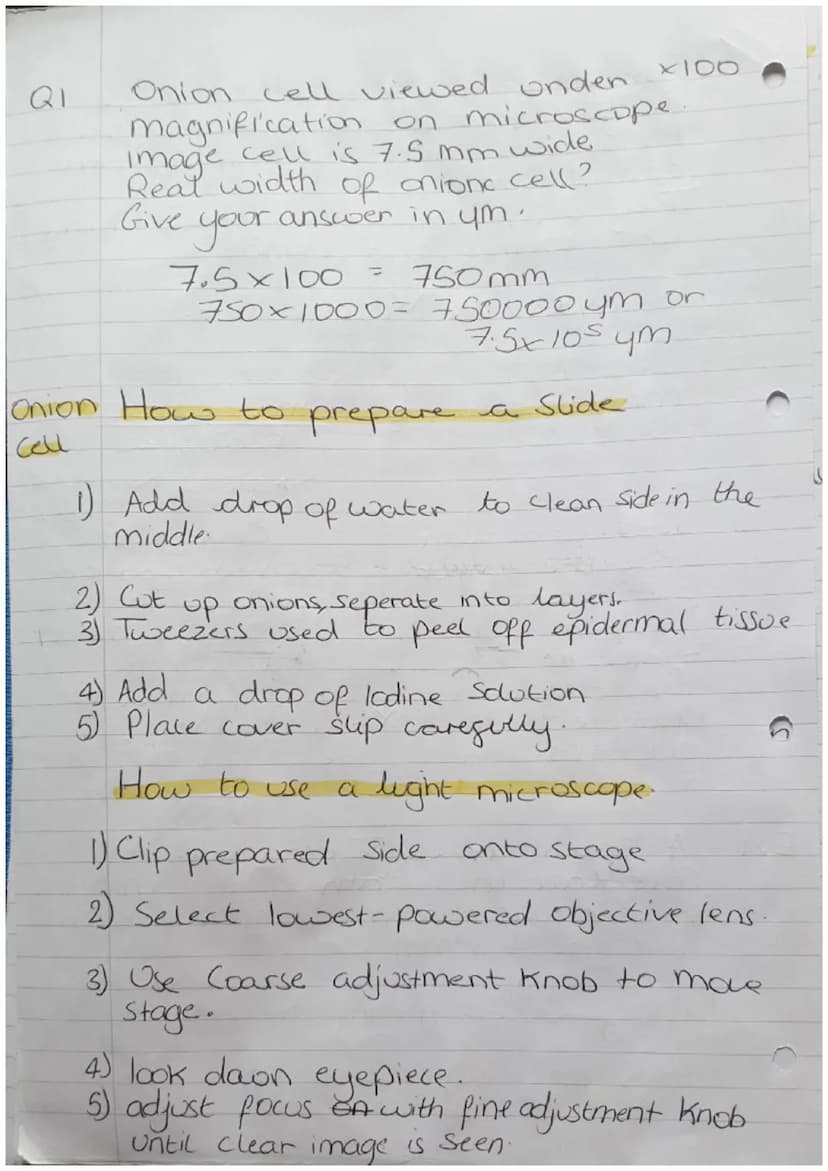 Q1 Onion cell viewed under ×100
magnification on microscope.
image cell is 7.5 mm wide
Real width of onione cell?
Give your answer in ym.
7.5 × 100 = 750mm
750 × 1000 = 750000 ym or
7.5 × 10⁵ ym
Onion How to prepare a Slide
Cell
1) Add drop of water to clean side in the
middle.
2) Cut up onions, seperate into layers.
3) Tweezers used to peel off epidermal tissue
4) Add a drop of Iodine Solution
5) Place cover slip carefully.
How to use a light microscope.
1) Clip prepared side onto stage
2) Select lowest-powered objective lens.
3) Use Coarse adjustment Knob to move
stage.
4) look daon eyepiece.
5) adjust focus with fine adjustment Knob
until clear image is seen.